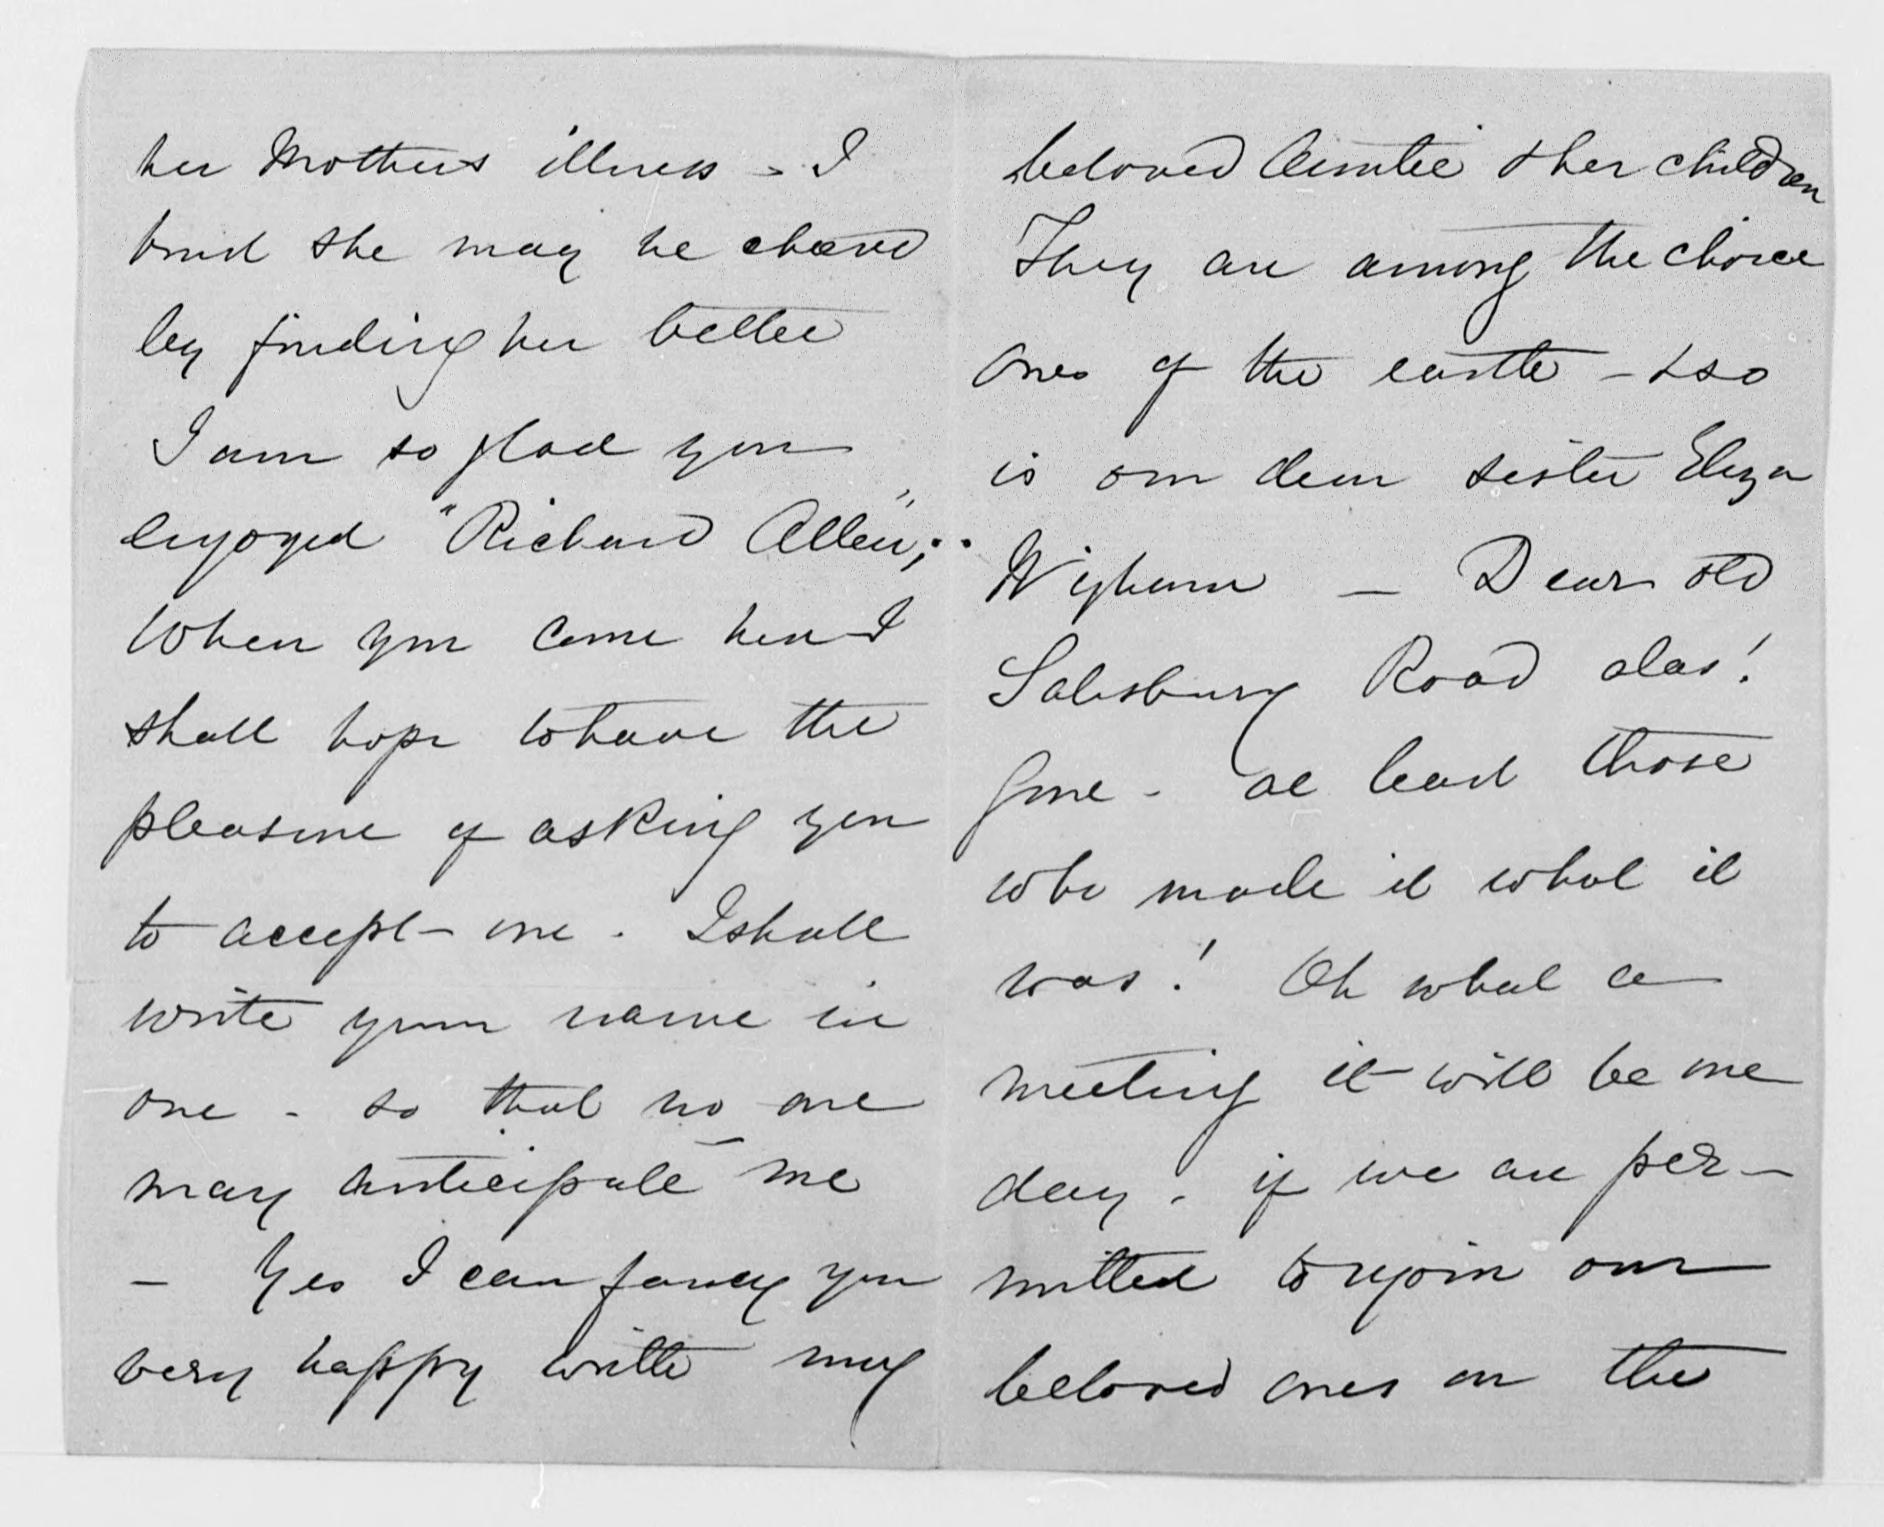 her Mothers illness - I
trust she may be cheered
by finding her better
I am so glad you
enjoyed "Richard Allen";
When you come here I
shall hope to have the
pleasure of asking you
to accept one. I shall
write your name in
one - so that no one
may anticipate me
- Yes I can fancy you
very happy with my
beloved Auntie & her children
They are among the choice
ones of the earth - & so
is our dear sister Eliza
Wigham - Dear old
Salisbury Road alas!
gone - at least those
who made it what it
was! Oh what a
meeting it will be one
day. if we are per-
mitted to rejoin our
beloved ones on the